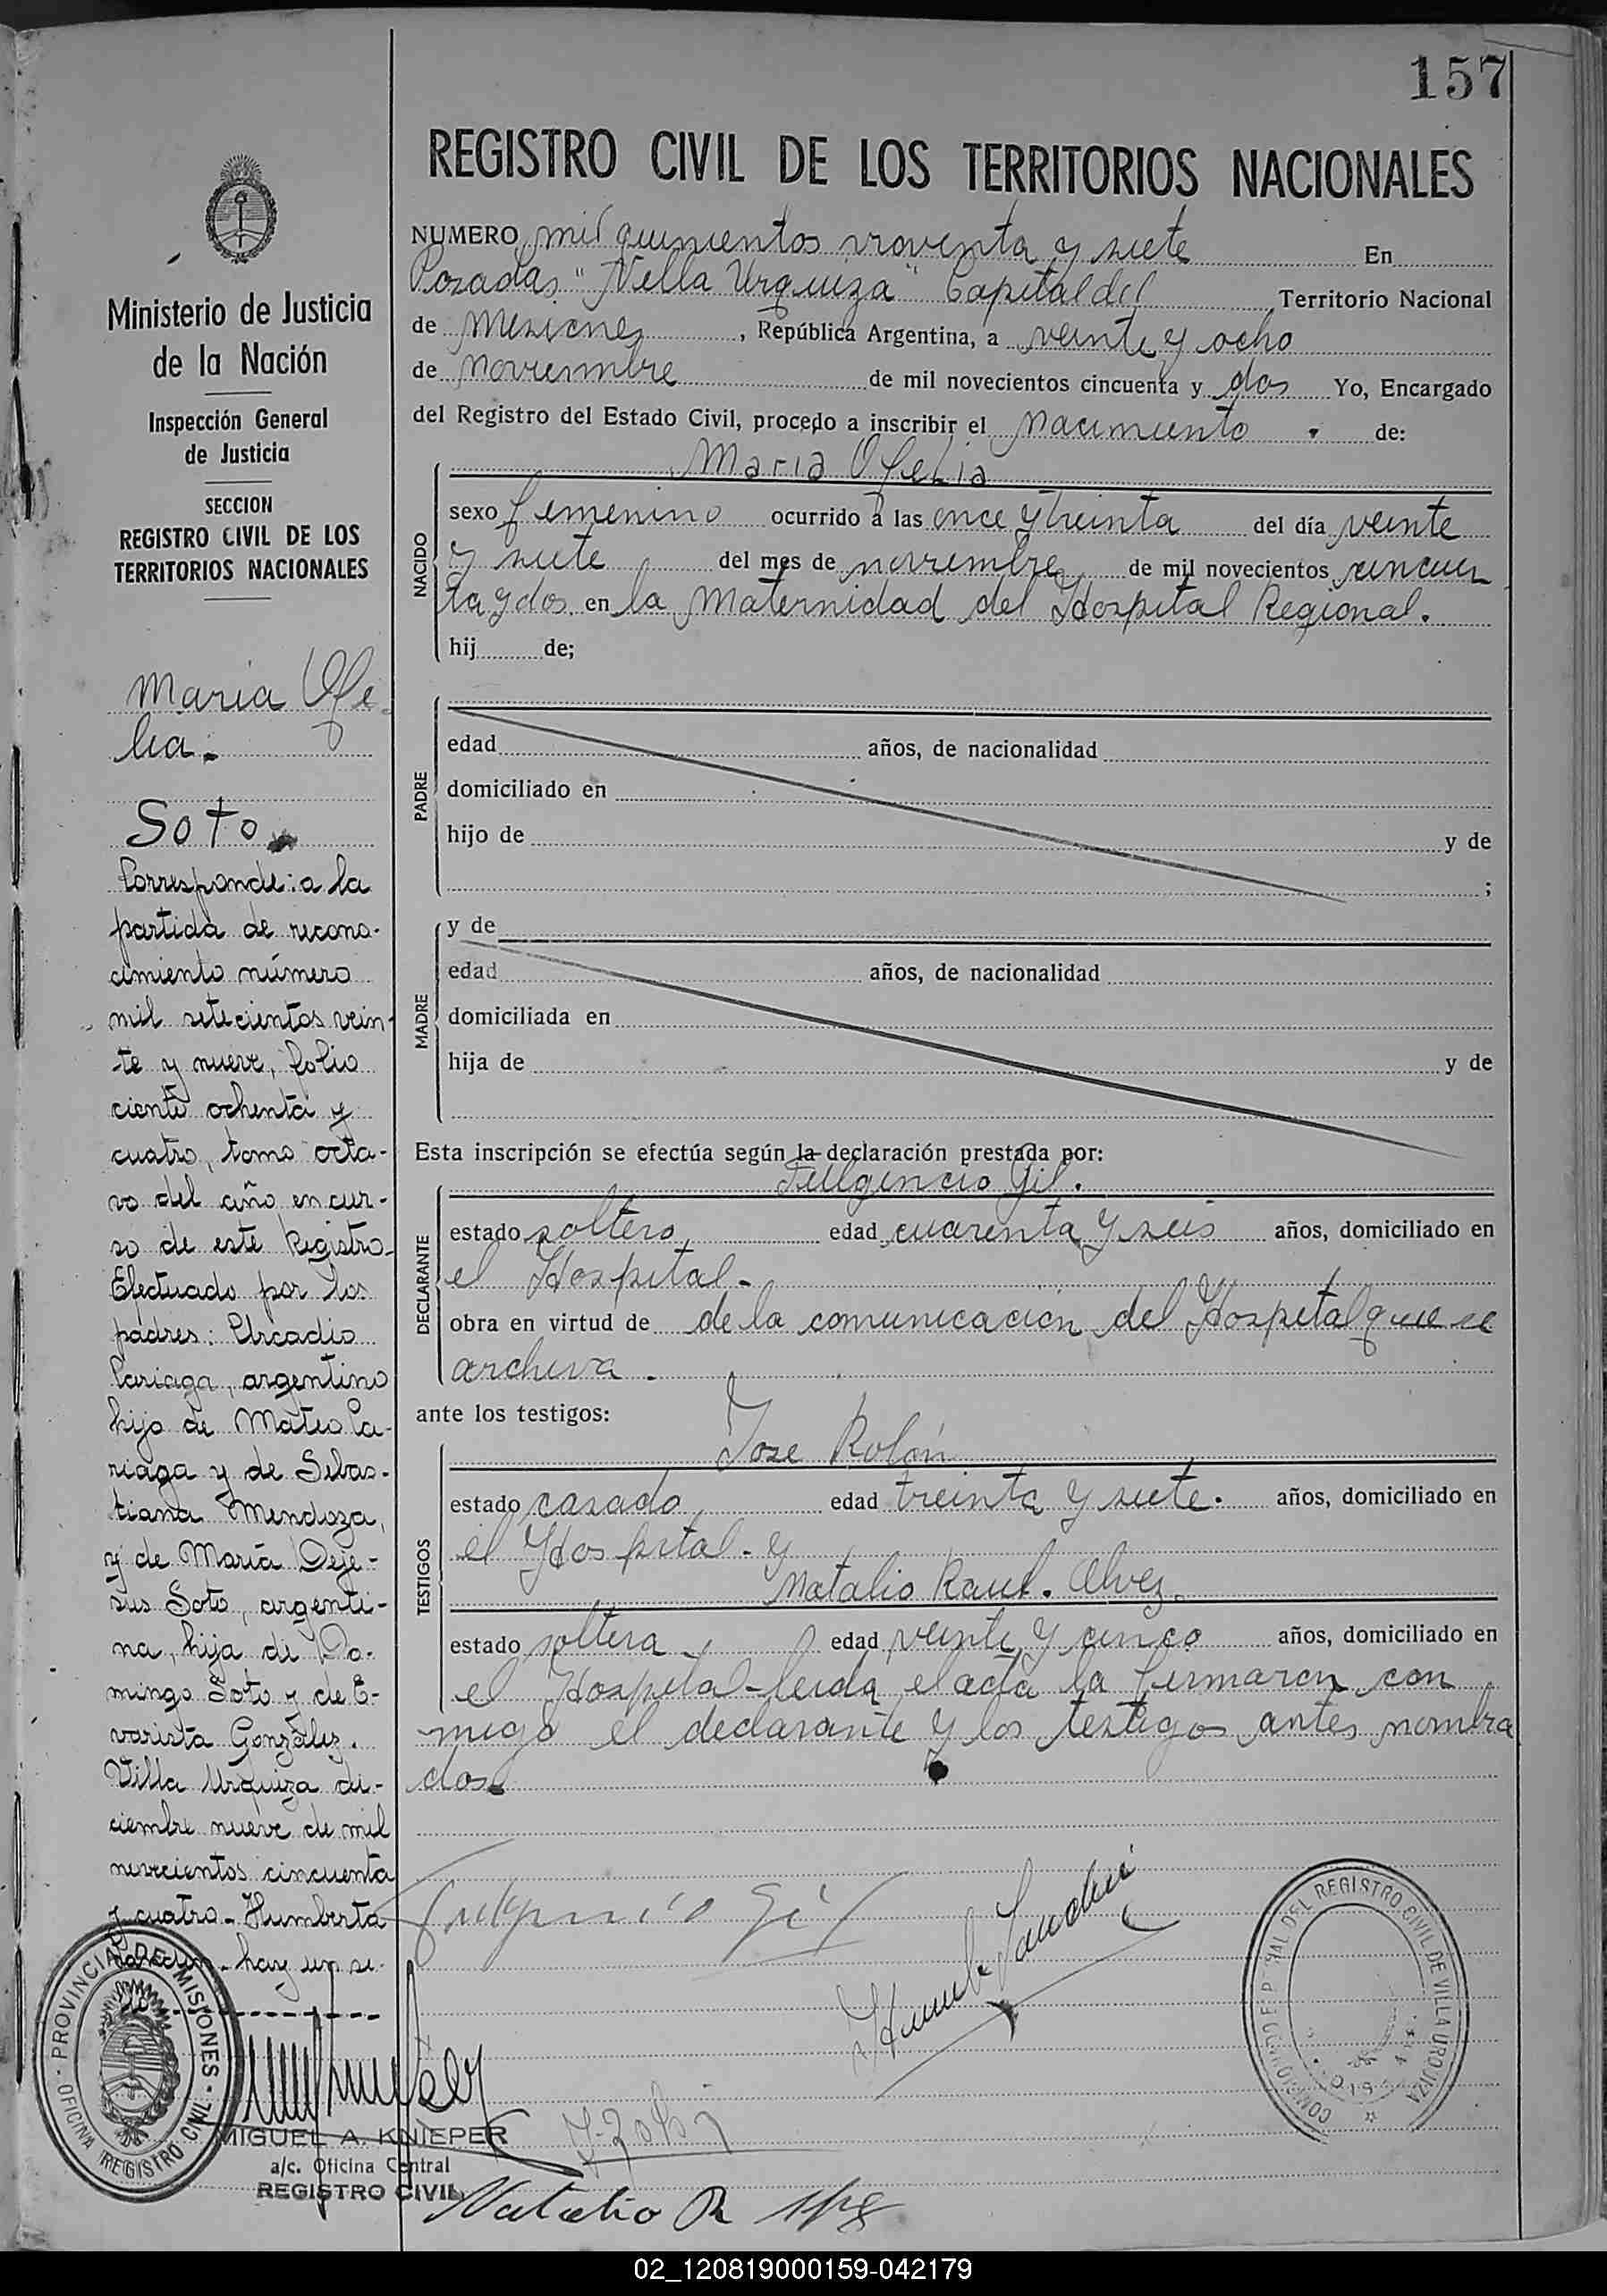 157
REGISTRO CIVIL DE LOS TERRITORIOS NACIONALES
NUMERO mil quinientos noventa y siete En
Posadas "Villa Urquiza" Capital del Territorio Nacional
de Misiones, República Argentina, a veinte y ocho
de noviembre de mil novecientos cincuenta y dos Yo, Encargado
del Registro del Estado Civil, procedo a inscribir el Nacimiento de:
Maria Ofelia
NACIDO
sexo femenino ocurrido a las once y treinta del día veinte
y siete del mes de noviembre de mil novecientos cincuen
ta y dos en la Maternidad del Hospital Regional.
hij de;
PADRE
edad años, de nacionalidad
domiciliado en
hijo de y de
;
MADRE
y de
edad años, de nacionalidad
domiciliada en
hija de y de
Esta inscripción se efectúa según la declaración prestada por:
Fulgencio Gil.
DECLARANTE
estado soltero edad cuarenta y seis años, domiciliado en
el Hospital-
obra en virtud de de la comunicación del Hospital que se
archiva.
ante los testigos:
Jose Rolón
TESTIGOS
estado casado edad treinta y siete. años, domiciliado en
el Hospital- y
Natalio Raul. Alvez.
estado soltera, edad veinte y cinco años, domiciliado en
el Hospital-leida el acta la firmaron con
migo el declarante y los testigos antes nombra
dos
Fulgencio Gil
Natalio R
Ministerio de Justicia
de la Nación
Inspección General
de Justicia
SECCION
REGISTRO CIVIL DE LOS
TERRITORIOS NACIONALES
Maria Ofe-
lia.
Soto
Corresponde: a la
partida de recono-
cimiento número
mil setecientos vein-
te y nueve, folio
ciento ochenta y
cuatro, tomo octa-
vo del año en cur-
so de este Registro-
Efectuado por los
padres: Arcadio
Cariaga, argentino
hijo de Mateo Ca-
riaga y de Sebas-
tiana Mendoza,
y de María Deje-
sus Soto, argenti-
na, hija de Do-
mingo Soto y de E-
varista González.
Villa Urquiza di-
ciembre nueve de mil
novecientos cincuenta
y cuatro- Humberto
hay un se-
PROVINCIA DE MISIONES - OFICINA REGISTRO CIVIL
MIGUEL A. KNIEPER
a/c. Oficina Central
REGISTRO CIVIL
DEL REGISTRO CIVIL DE VILLA URQUIZA
02_120819000159-042179